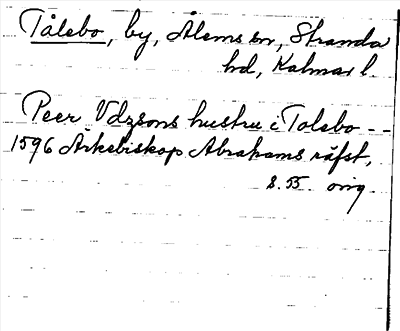 Tålebo, by, Ålems sn, Stranda
hd, Kalmar l.
Peer Vdzsons hustru i Tolebo --
1596 Ärkebiskop Abrahams räfst,
s. 55. orig.